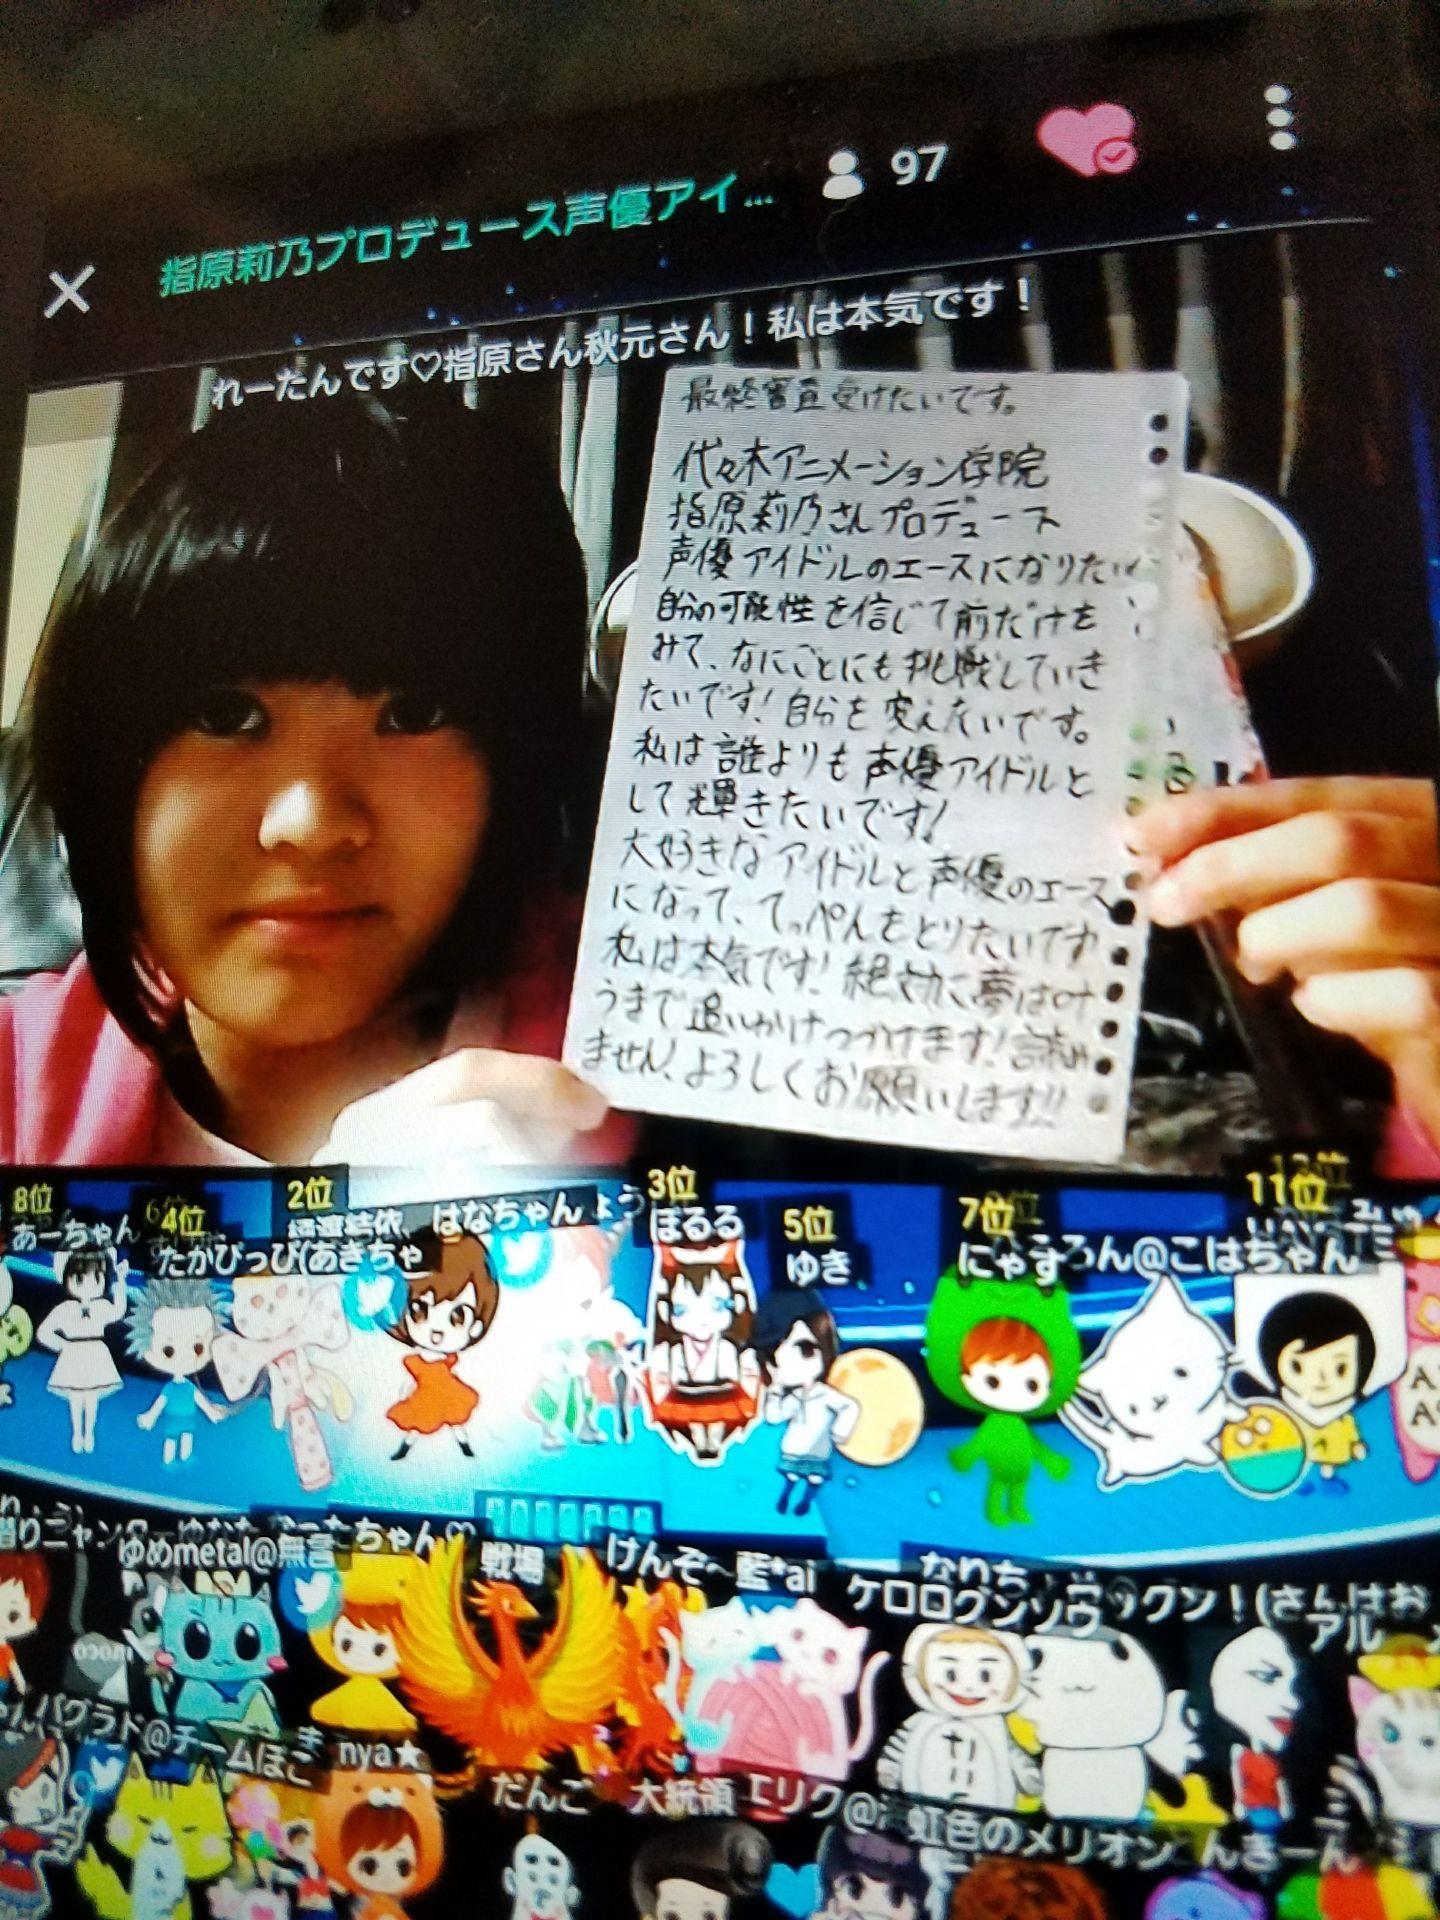 指原莉乃プロデュース声優アイ...
97
れーたんです♡指原さん秋元さん！私は本気です！
最終審査受けたいです。
代々木アニメーション学院
指原莉乃さんプロデュース
声優アイドルのエースになりたい
自分の可能性を信じて前だけを
みて、なにごとにも挑戦していき
たいです！自分を変えたいです。
私は誰よりも声優アイドルと
して輝きたいです！
大好きなアイドルと声優のエース
になって、てっぺんをとりたいです
私は本気です！絶対に夢は叶
うまで追いかけつづけます！諦め
ません！よろしくお願いします!!
8位
あーちゃん
6位
4位
たかぴっぴ(あきちゃ
2位
はなちゃんょう
3位
ぽるる
5位
ゆき
7位
にゃす
ろん@こはちゃん
11位
ゆめmetal@無言
たちゃん
戦場
けんぞ〜
藍*ai
なりち
ケロログンソウ
ックン！(さんはお
アル
パグラド@チームぽこ
nya★
だんご
大統領
エリク@
虹色のメリオン
んきーん